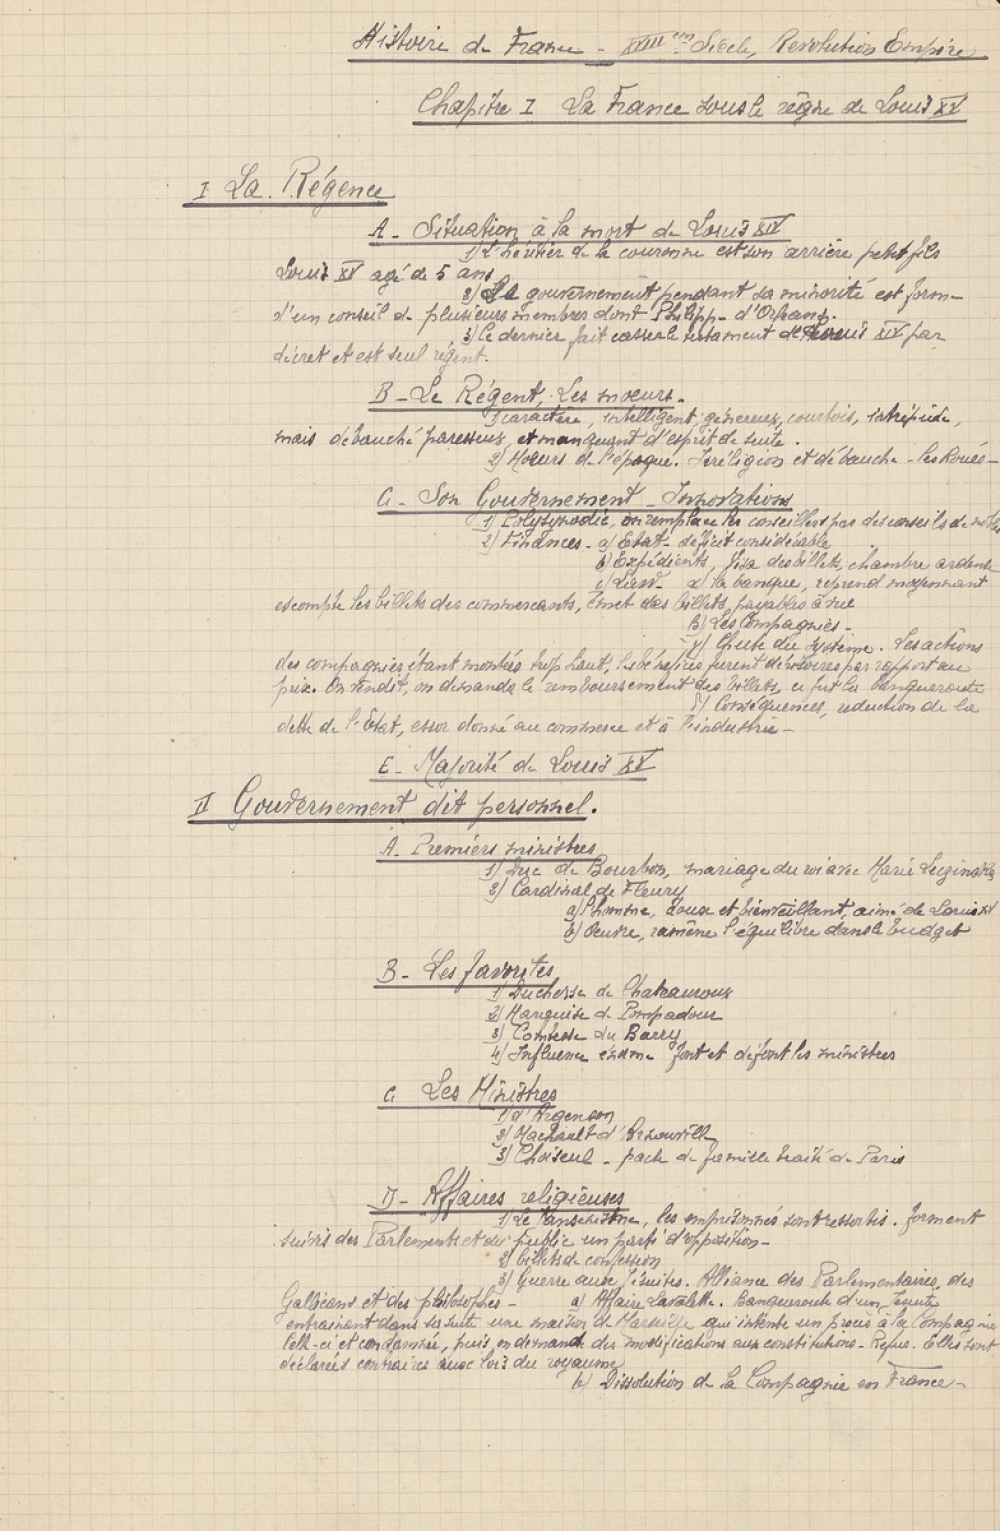 Histoire de France - XVIII em Siècle, Revolution Empire
Chapitre I La France sous le règne de Louis XV
I La Régence
A - Situation à la mort de Louis XIV
1) L'héritier de la couronne est son arrière petit fils
Louis XV agé de 5 ans
2) Le gouvernement pendant sa minorité est form-
d'un conseil de plusieurs membres dont Philipp- d'Orléans.
3) Ce dernier fait casser le testament de Louis XIV par
décret et est seul régent.
B - Le Régent, Les moeurs.
1) caractère, intelligent, généreux, courtois, intrépide,
mais débauché paresseux, et manquant d'esprit de suite.
2) Moeurs de l'époque. Irréligion et débauche - les Roués -
C - Son Gouvernement - Innovations
1) Polysynodie, on remplace les conseillers par des conseils de nobles
2) Finances - a) Etat - déficit considérable
b) Expédients, Visa des billets, chambre ardente
c) Law α) la banque, reprend moyennant
escompte les billets des commercants, émet des billets payables à vue
β) Les Compagnies -
γ) Chute du système. Les actions
des compagnies étant montées trop haut, les bénéfices furent dérisoires par rapport au
prix. On vendit, on demanda le remboursement des billets, ce fut la banqueroute
δ) Conséquences, reduction de la
dette de l'Etat, essor donné au commerce et à l'industrie -
E - Majorité de Louis XV
II Gouvernement dit personnel.
A - Premiers ministres
1) Duc de Bourbon, mariage du roi avec Marie Leszinska
2) Cardinal de Fleury
a) l'homme, doux et bienveillant, aimé de Louis XV
b) Oeuvre, ramène l'équilibre dans le budget
B - Les favorites
1) Duchesse de Chateauroux
2) Marquise de Pompadour
3) Comtesse du Barry
4) Influence énorme font et défont les ministres
C Les Ministres
1) d'Argenson
2) Machault d'Arnouville
3) Choiseul - pacte de famille traité de Paris
D - Affaires religieuses
1) Le Jansénisme, les emprisonnés sont ressortis. forment
suivis des Parlements et du public un parti d'opposition -
2) billets de confession
3) Guerre aux Jésuites. Alliance des Parlementaires, des
Gallicans et des philosophes - a) Affaire Lavalette. Banqueroute d'un Jésuite
entrainant dans sa suite une maison de Marseille qui intente un procès à la Compagnie
Celle-ci est condamnée, puis on demande des modifications aux constitutions - Refus. Elles sont
déclarées contraires aux lois du royaume
b) Dissolution de la Compagnie en France -